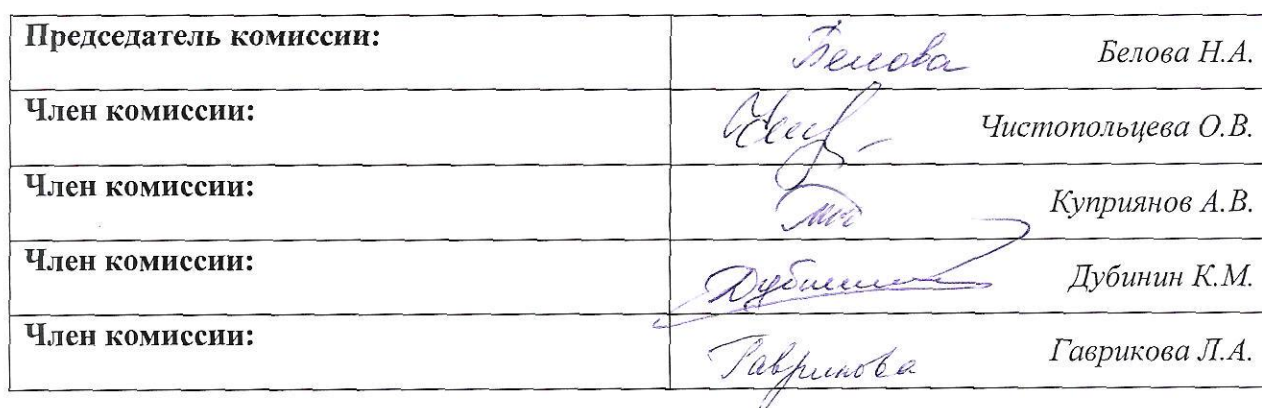 Председатель комиссии:
Белова Белова Н.А.
Член комиссии:
Чистопольцева О.В.
Член комиссии:
Куприянов А.В.
Член комиссии:
Дубинин К.М.
Член комиссии:
Гаврикова Гаврикова Л.А.